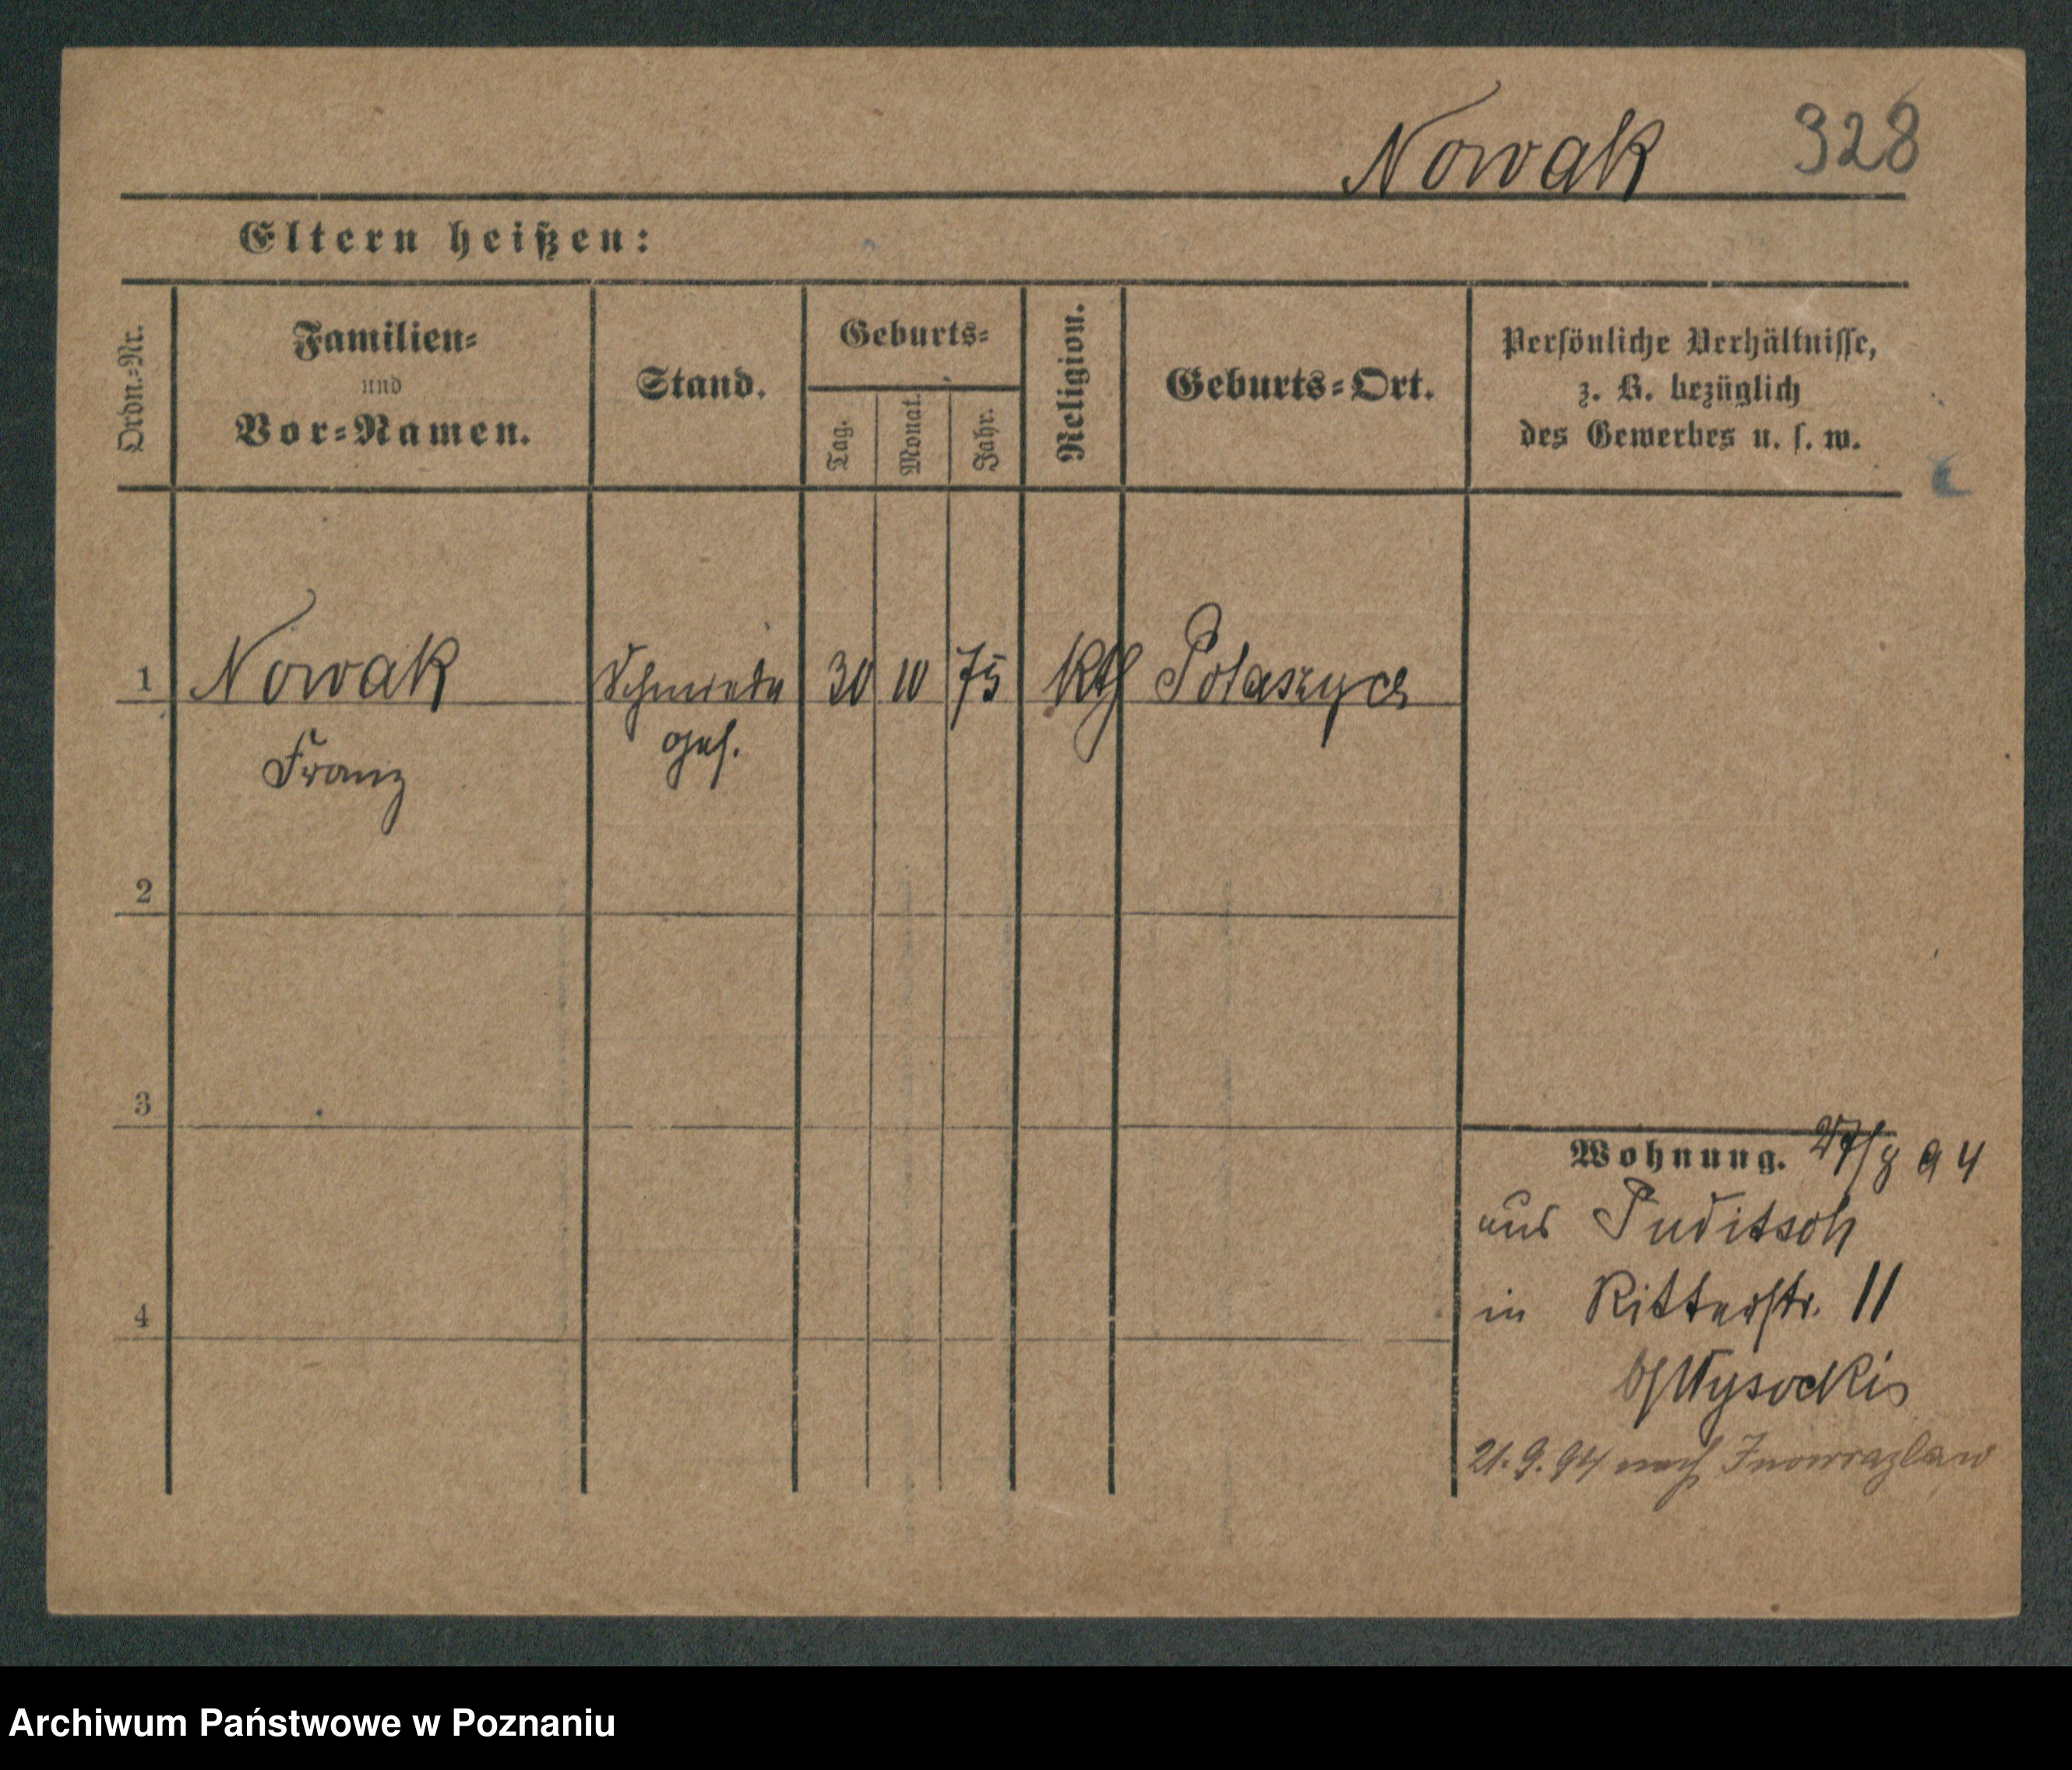 Nowak 328
Eltern heißen:
Ordn.=Nr.
Familien=
und
Vor=Namen.
Stand.
Geburts=
Tag.
Monat.
Jahr.
Religion.
Geburts=Ort.
Persönliche Verhältnisse,
z. B. bezüglich
des Gewerbes u. s. w.
1 Nowak Schmiede 30 10 75 kth Polaszyce
Franz ges.
2
3
4
Wohnung. 27/8 94
aus Puditsch
in Ritterstr. 11
b/Wysockis
21.9.94 nach Inowrazlaw
Archiwum Państwowe w Poznaniu